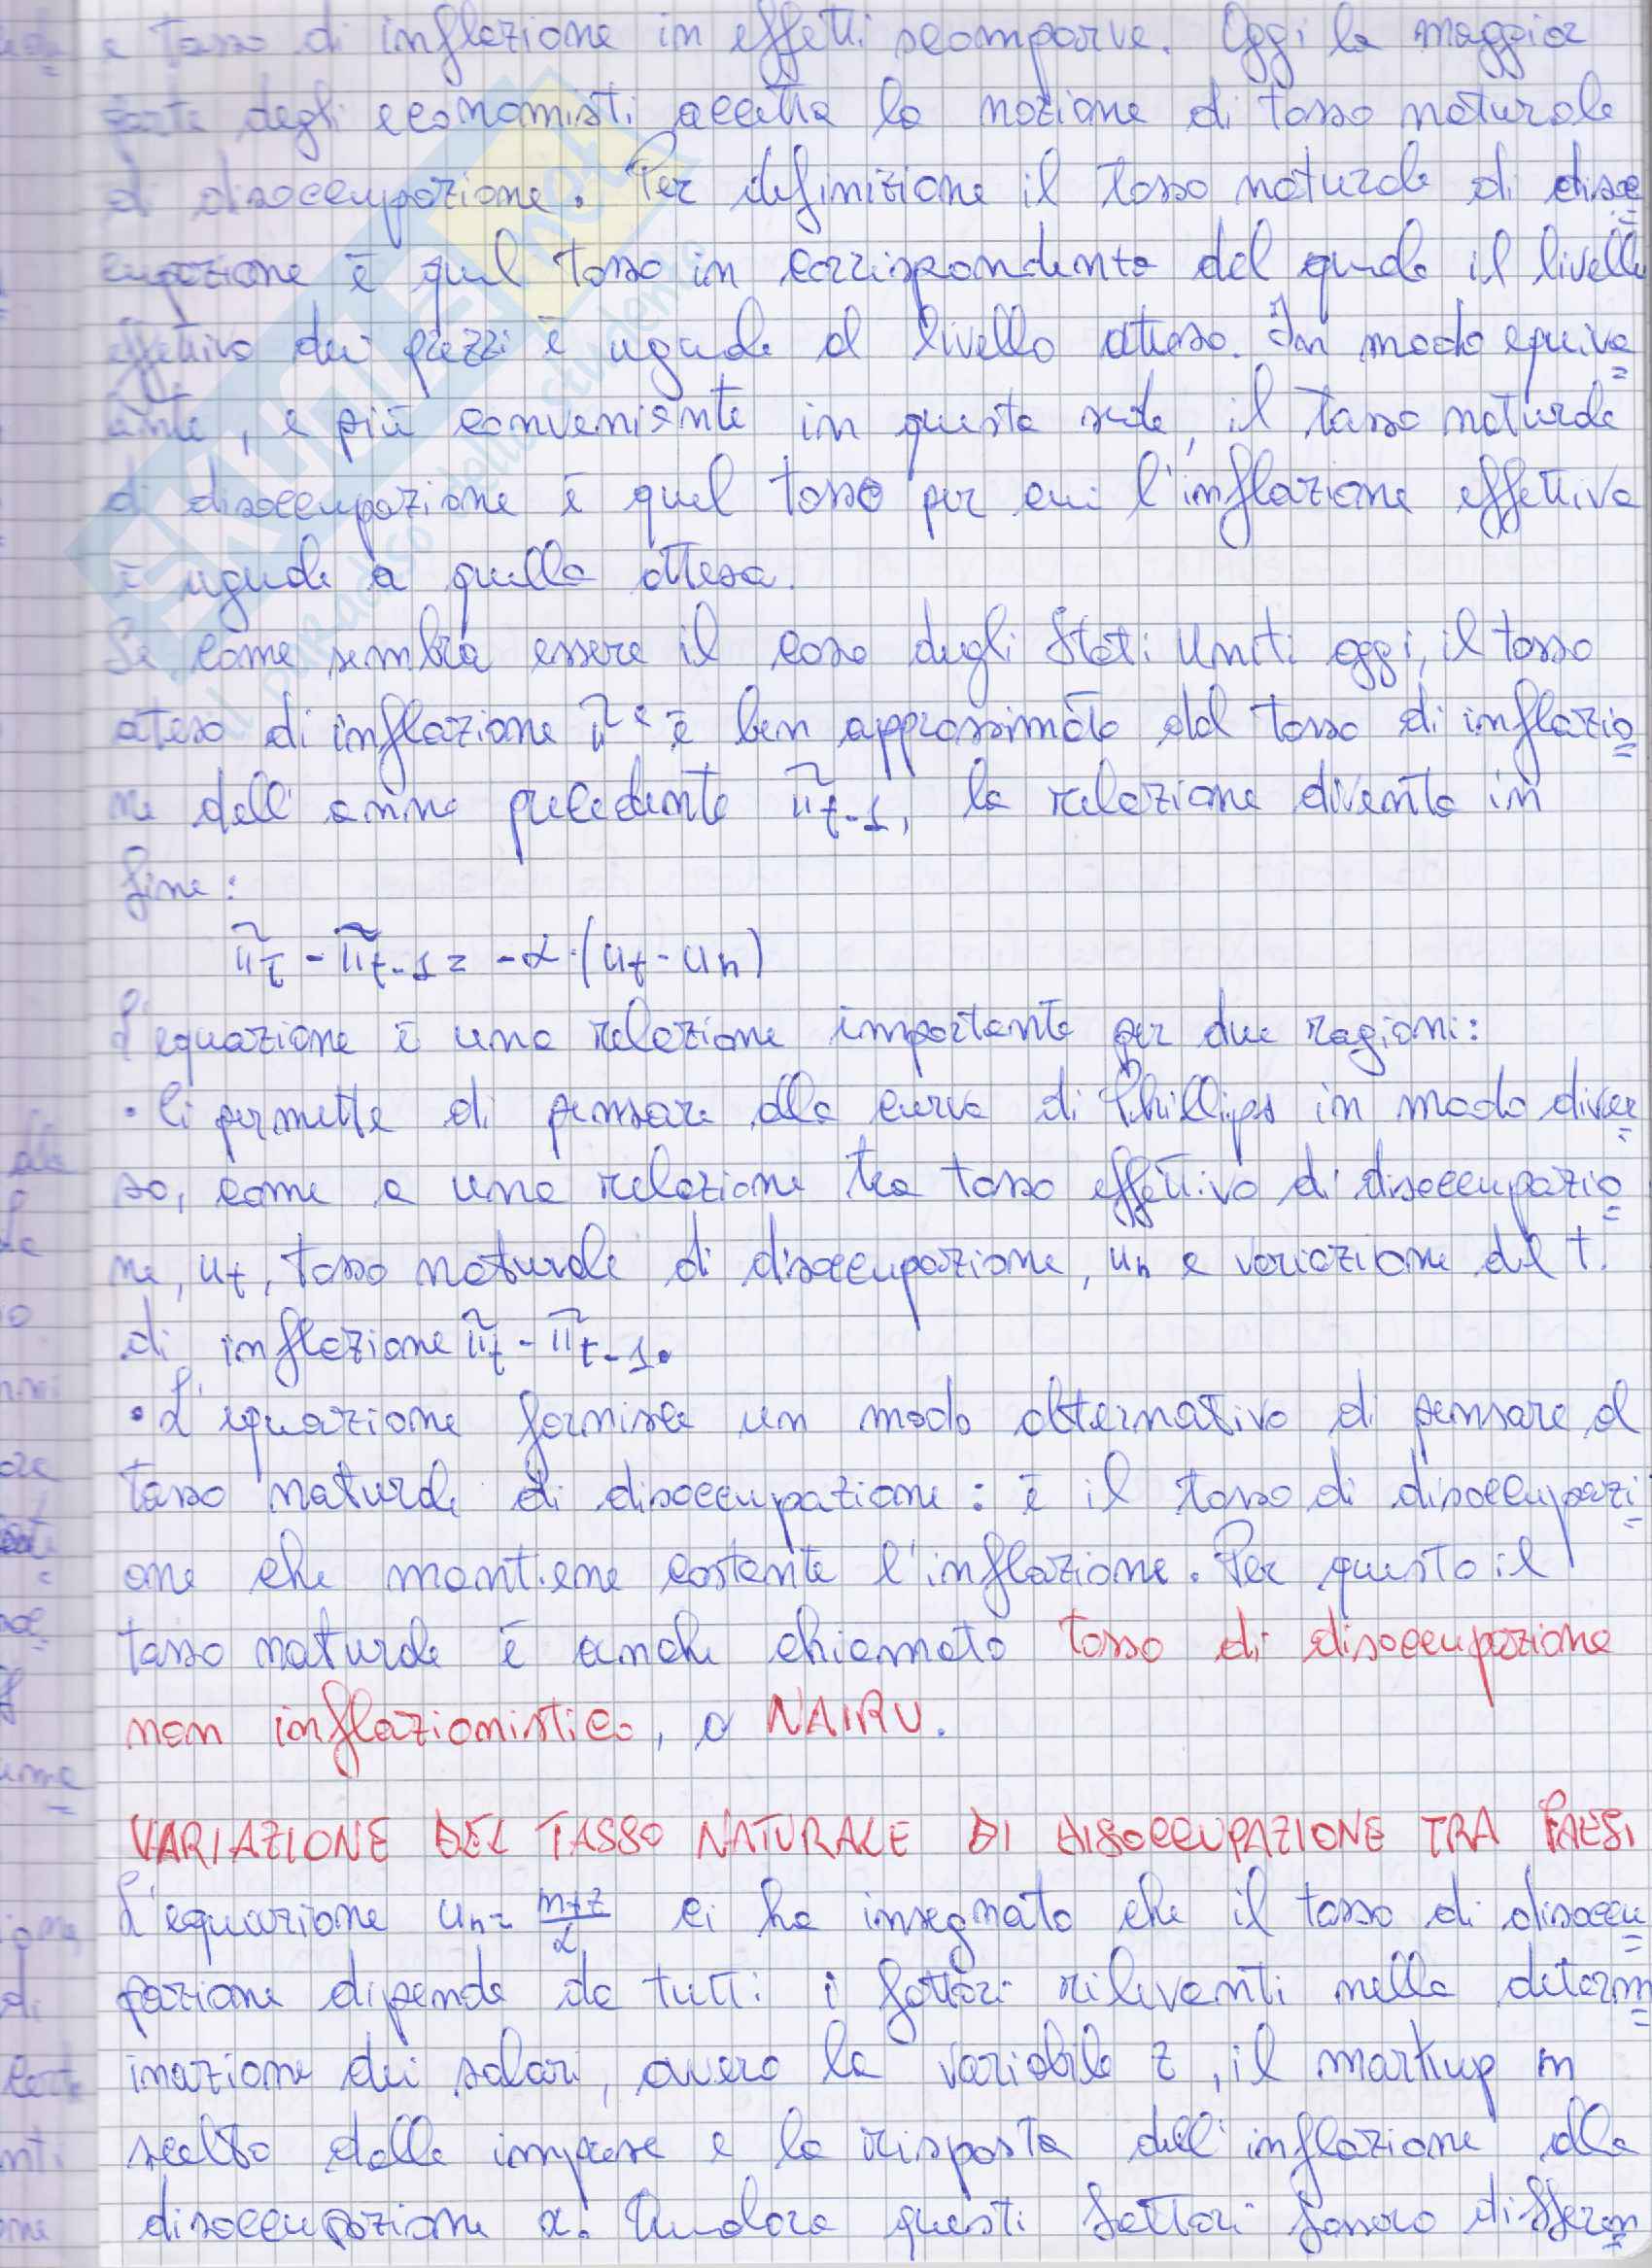 e tasso di inflazione in effetti scomparve. Oggi la maggior
parte degli economisti accetta la nozione di tasso naturale
di disoccupazione. Per definizione il tasso naturale di disoc=
cupazione è quel tasso in corrispondenta del quale il livello
effettivo dei prezzi è uguale al livello atteso. In modo equiva=
lente, e più conveniente in questa sede, il tasso naturale
di disoccupazione è quel tasso per cui l'inflazione effettiva
è uguale a quella attesa.
Se come sembra essere il caso degli Stati Uniti oggi, il tasso
atteso di inflazione πᵉ è ben approssimato dal tasso di inflazio=
ne dell'anno precedente πt-1, la relazione diventa in
fine:
πt - πt-1 = -α·(ut - un)
L'equazione è una relazione importante per due ragioni:
• Ci permette di pensare alla curva di Phillips in modo diver=
so, come a una relazione tra tasso effettivo di disoccupazio=
ne, ut, tasso naturale di disoccupazione, un e variazione del t.
di inflazione πt - πt-1.
• L'equazione fornisce un modo alternativo di pensare al
tasso naturale di disoccupazione: è il tasso di disoccupazi=
one che mantiene costante l'inflazione. Per questo il
tasso naturale è anche chiamato tasso di disoccupazione
non inflazionistico, o NAIRU.
VARIAZIONE DEL TASSO NATURALE DI DISOCCUPAZIONE TRA PAESI
L'equazione un = m+z/α ci ha insegnato che il tasso di disoccu=
pazione dipende da tutti i fattori rilevanti nella determ=
inazione dei salari, ovvero la variabile z, il markup m
scelto dalle imprese e la risposta dell'inflazione alla
disoccupazione α. Qualora questi fattori fossero differen=